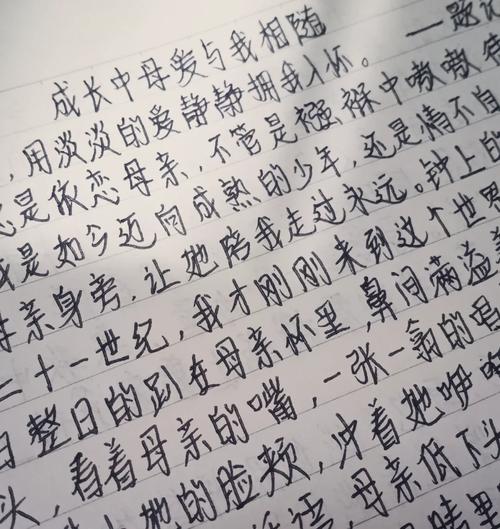 成长中母爱与我相随
，用淡淡的爱静静拥我入怀。 ——题记
总是依恋母亲，不管是襁褓中嗷嗷
或是如今迈向成熟的少年，还是情不自
母亲身旁，让她陪我走过永远。钟上的
二十一世纪，我才刚刚来到这个世界
日整日的趴在母亲怀里，鼻间满溢
头，看着母亲的嘴，一张一翕的
她的脸颊，冲着她咿
语，母亲低下头